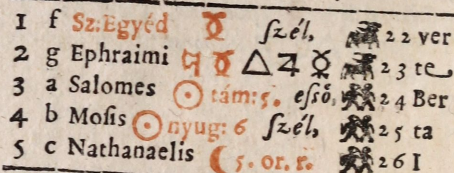 1 f Sz:Egyéd ☿ ſzél, 22 ver
2 g Ephraimi ☿ △ ♃ ☿ 23 te
3 a Salomes ☉ tám: 5. eſső, 24 Ber
4 b Moſis ☉ nyug: 6 ſzél, 25 ta
5 c Nathanaelis ☾ 5. or. r. 26 I